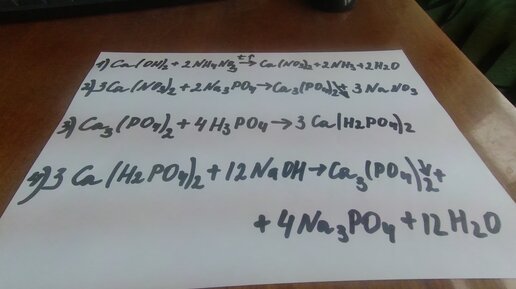 1) Ca(OH)2 + 2NH4NO3 t°→ Ca(NO3)2 + 2NH3 + 2H2O
2) 3Ca(NO3)2 + 2Na3PO4 → Ca3(PO4)2↓ + 3NaNO3
3) Ca3(PO4)2 + 4H3PO4 → 3Ca(H2PO4)2
4) 3Ca(H2PO4)2 + 12NaOH → Ca3(PO4)2↓ +
+ 4Na3PO4 + 12H2O